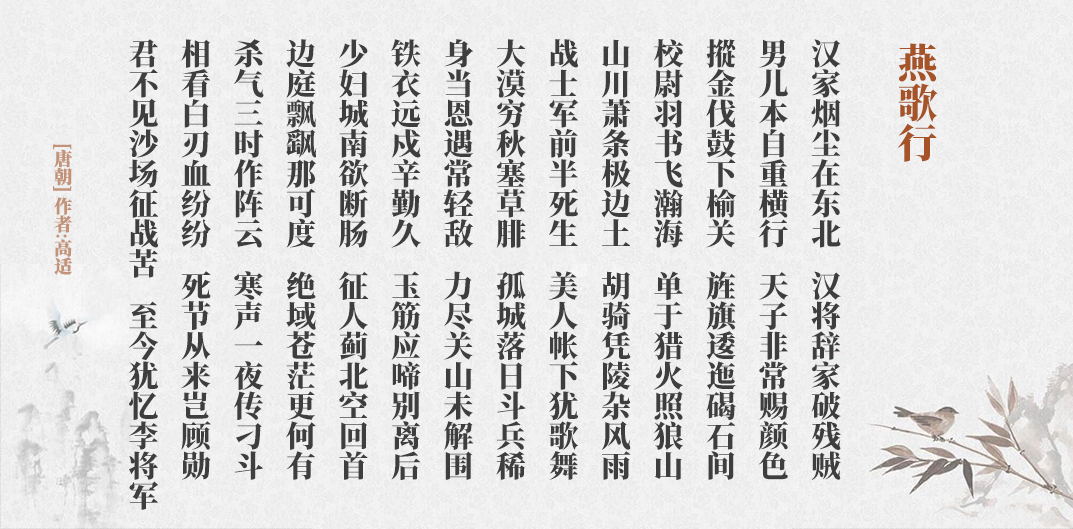 燕歌行
汉家烟尘在东北 汉将辞家破残贼
男儿本自重横行 天子非常赐颜色
摐金伐鼓下榆关 旌旗逶迤碣石间
校尉羽书飞瀚海 单于猎火照狼山
山川萧条极边土 胡骑凭陵杂风雨
战士军前半死生 美人帐下犹歌舞
大漠穷秋塞草腓 孤城落日斗兵稀
身当恩遇常轻敌 力尽关山未解围
铁衣远戍辛勤久 玉筋应啼别离后
少妇城南欲断肠 征人蓟北空回首
边庭飘飖那可度 绝域苍茫更何有
杀气三时作阵云 寒声一夜传刁斗
相看白刃血纷纷 死节从来岂顾勋
君不见沙场征战苦 至今犹忆李将军
[唐朝] 作者:高适